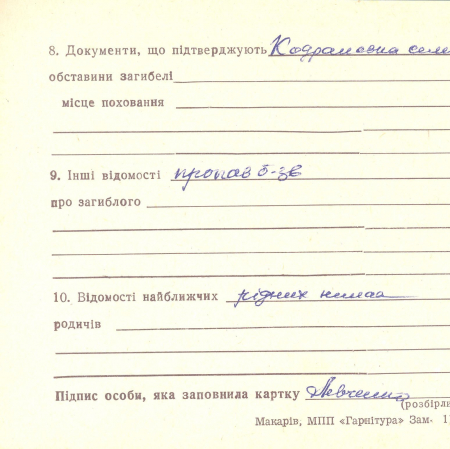 8. Документи, що підтверджують
обставини загибелі
місце поховання
9. Інші відомості пропав б-зв
про загиблого
10. Відомості найближчих рідних немає
родичів
Підпис особи, яка заповнила картку Левченко
(розбірли
Макарів, МПП «Гарнітура» Зам- 1